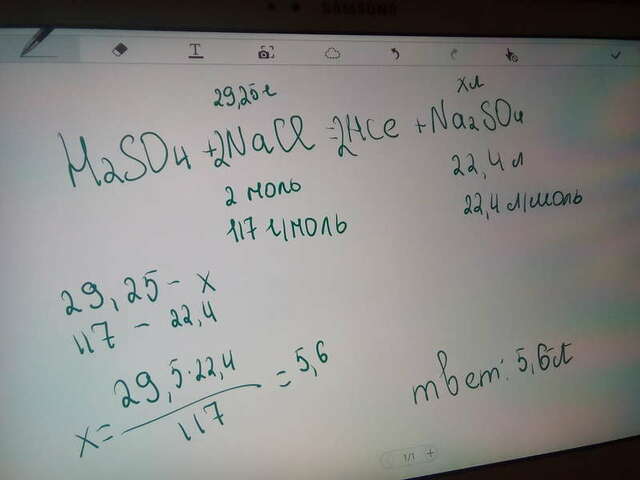 SAMSUNG
T
29,25г
xл
H2SO4 + 2NaCl = 2HCl + Na2SO4
2 моль
22,4 л
117 г/моль
22,4 л/моль
29,25 - x
117 - 22,4
x = 29,5·22,4 / 117 = 5,6
твет: 5,6л
1/1 +